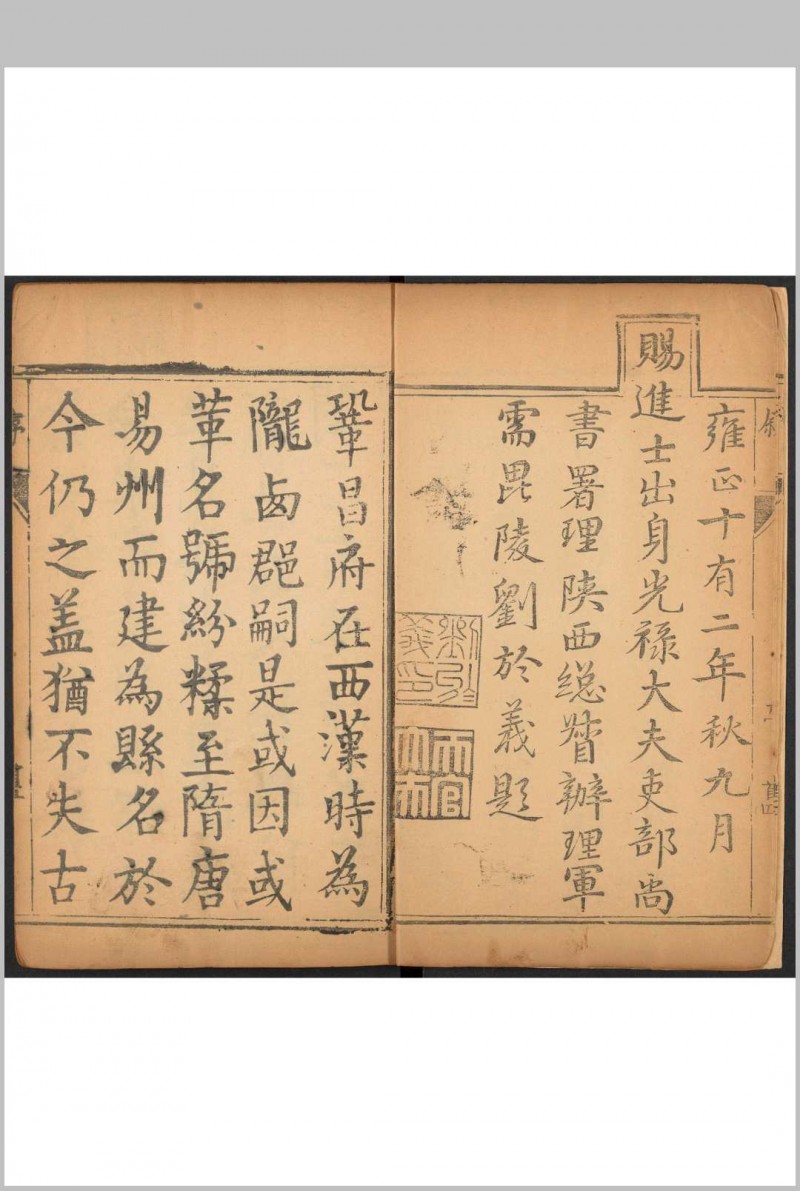 雍正十有二年秋九月
賜進士出身光祿大夫吏部尚
書署理陝西總督辦理軍
需毘陵劉於義題
鞏昌府在西漢時為
隴西郡嗣是或因或
革名號紛糅至隋唐
易州而建為縣名於
今仍之蓋猶不失古